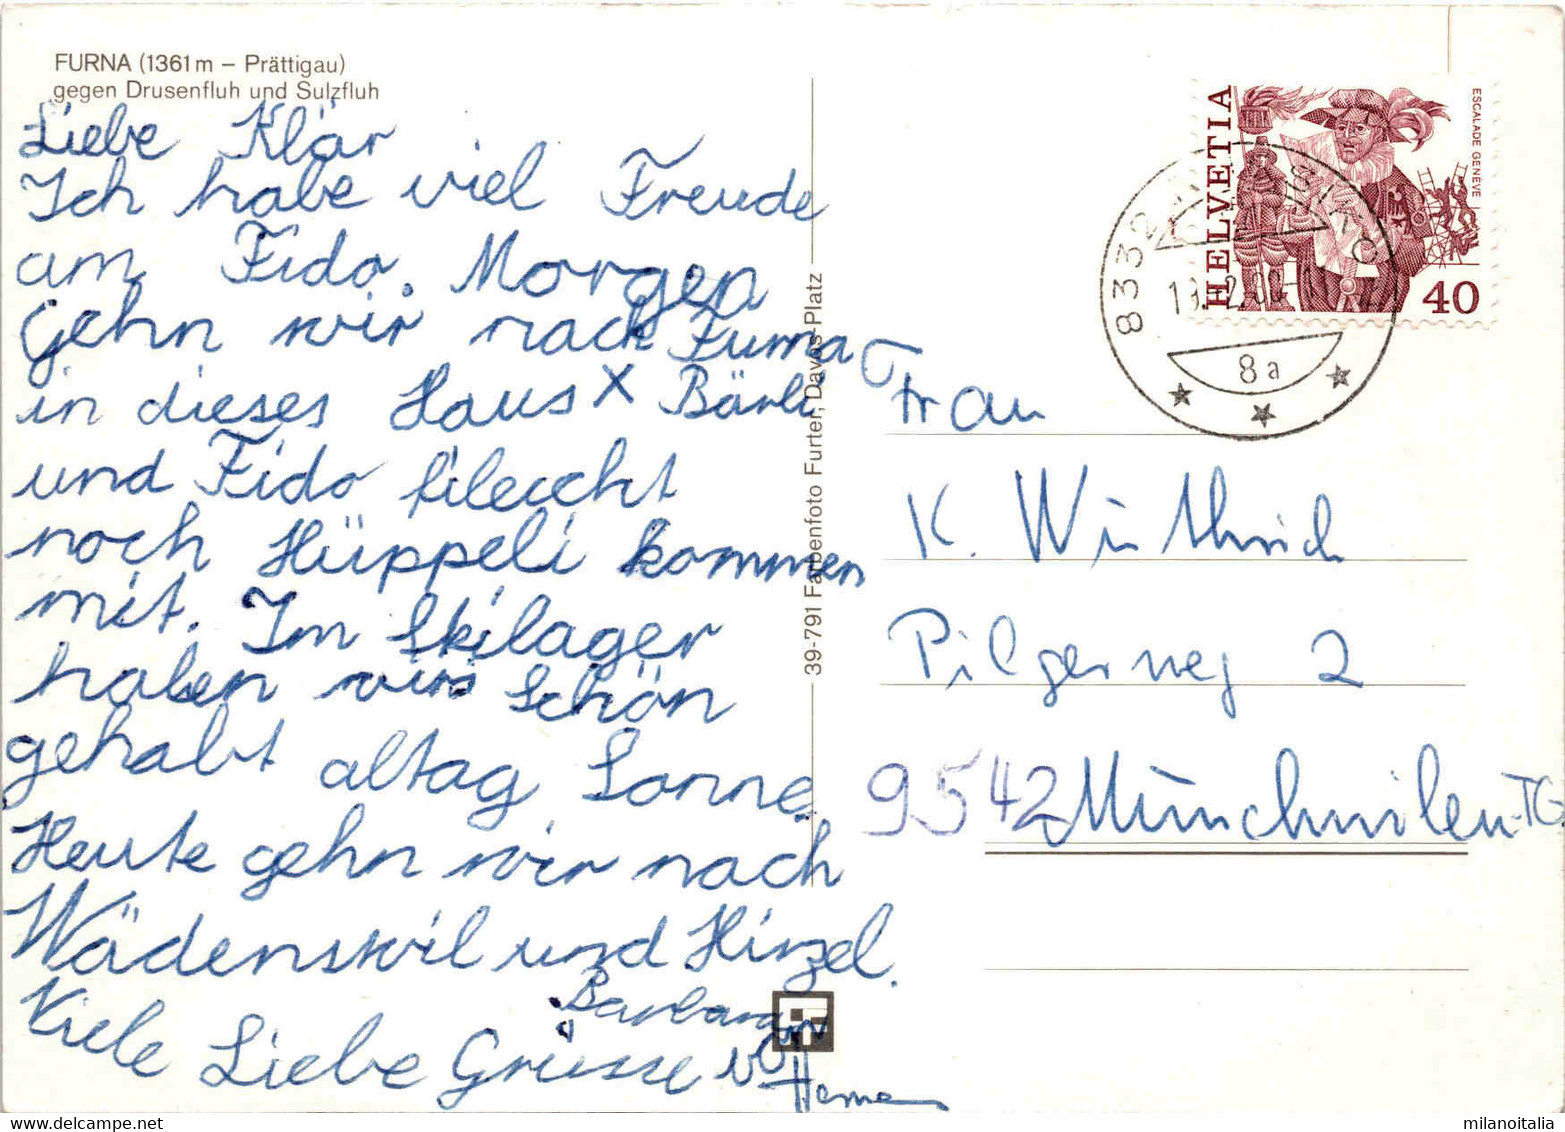 FURNA (1361 m – Prättigau)
gegen Drusenfluh und Sulzfluh
Liebe Klär
Ich habe viel Freude
am Fido. Morgen
gehn wir nach Furna
in dieses Haus X Bärli
und Fido fileicht
noch Hüppeli kommen
mit. Im Skilager
haben wir schön
gehabt altag Sonne
Heute gehn wir nach
Wädenswil und Hirzel.
Viele Liebe Grüsse von
Barbara
39-791 Farbenfoto Furter, Davos-Platz
HELVETIA
ESCALADE GENEVE
40
8332
8a
Frau
K. Wüthrich
Pilgerweg 2
9542 Münchwilen-TG
milanoitalia